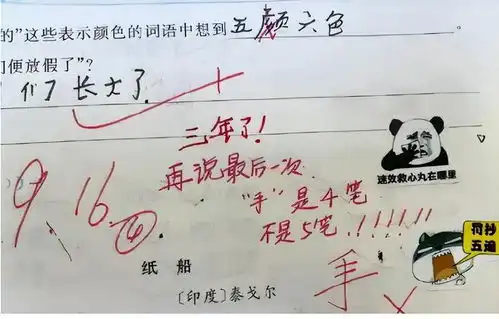 的”这些表示颜色的词语中想到 五颜六色。
门便放假了”？
们 长大了.
三年了！
再说最后一次
“手”是4笔
不是5笔！！！！！！
速效救心丸在哪里
9.16
④
手
罚抄
五遍
纸 船
〔印度〕泰戈尔